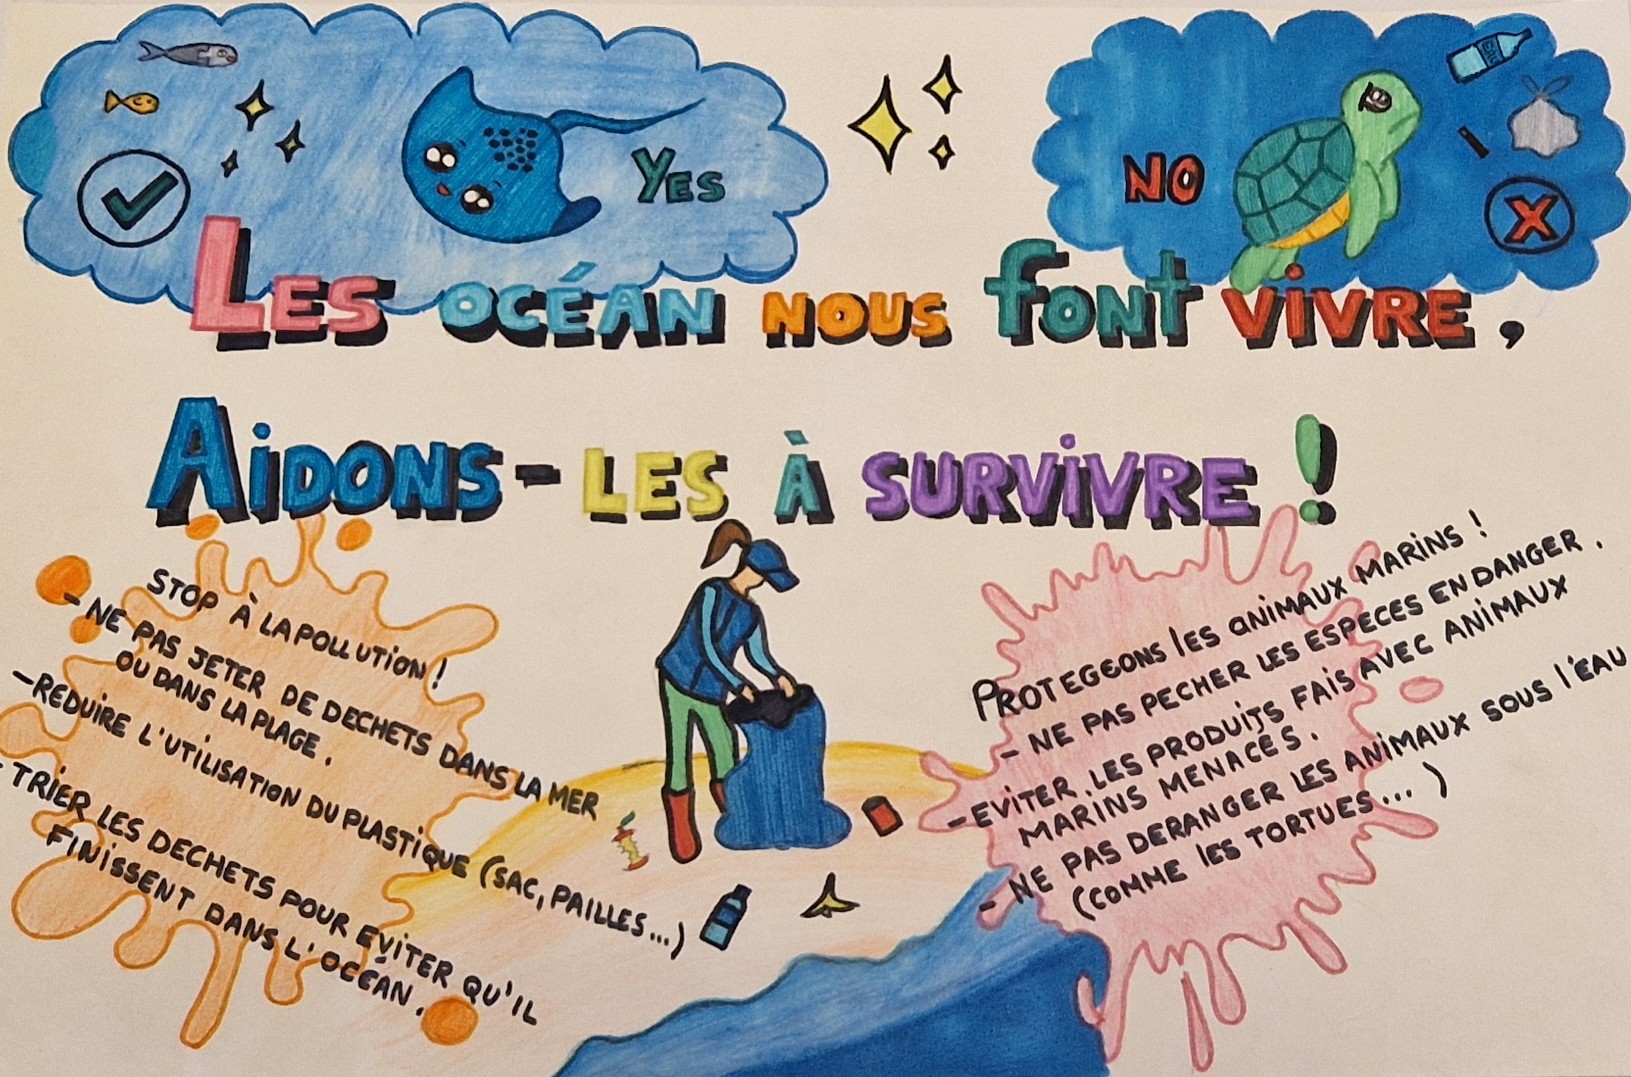 YES
NO
EAU
LES OCÉAN NOUS font VIVRE,
AIDONS-LES À SURVIVRE !
STOP À LA POLLUTION !
- NE PAS JETER DE DECHETS DANS LA MER
OU DANS LA PLAGE.
- REDUIRE L'UTILISATION DU PLASTIQUE (SAC, PAILLES...)
- TRIER LES DECHETS POUR EVITER QU'IL
FINISSENT DANS L'OCÉAN.
PROTEGEONS les aNIMAUX MARINS !
- NE PAS PECHER LES ESPECES EN DANGER.
- EVITER LES PRODUITS FAIS AVEC ANIMAUX
MARINS MENACÉS.
- NE PAS DERANGER LES ANIMAUX SOUS l'EAU
(COMME les TORTUES...)